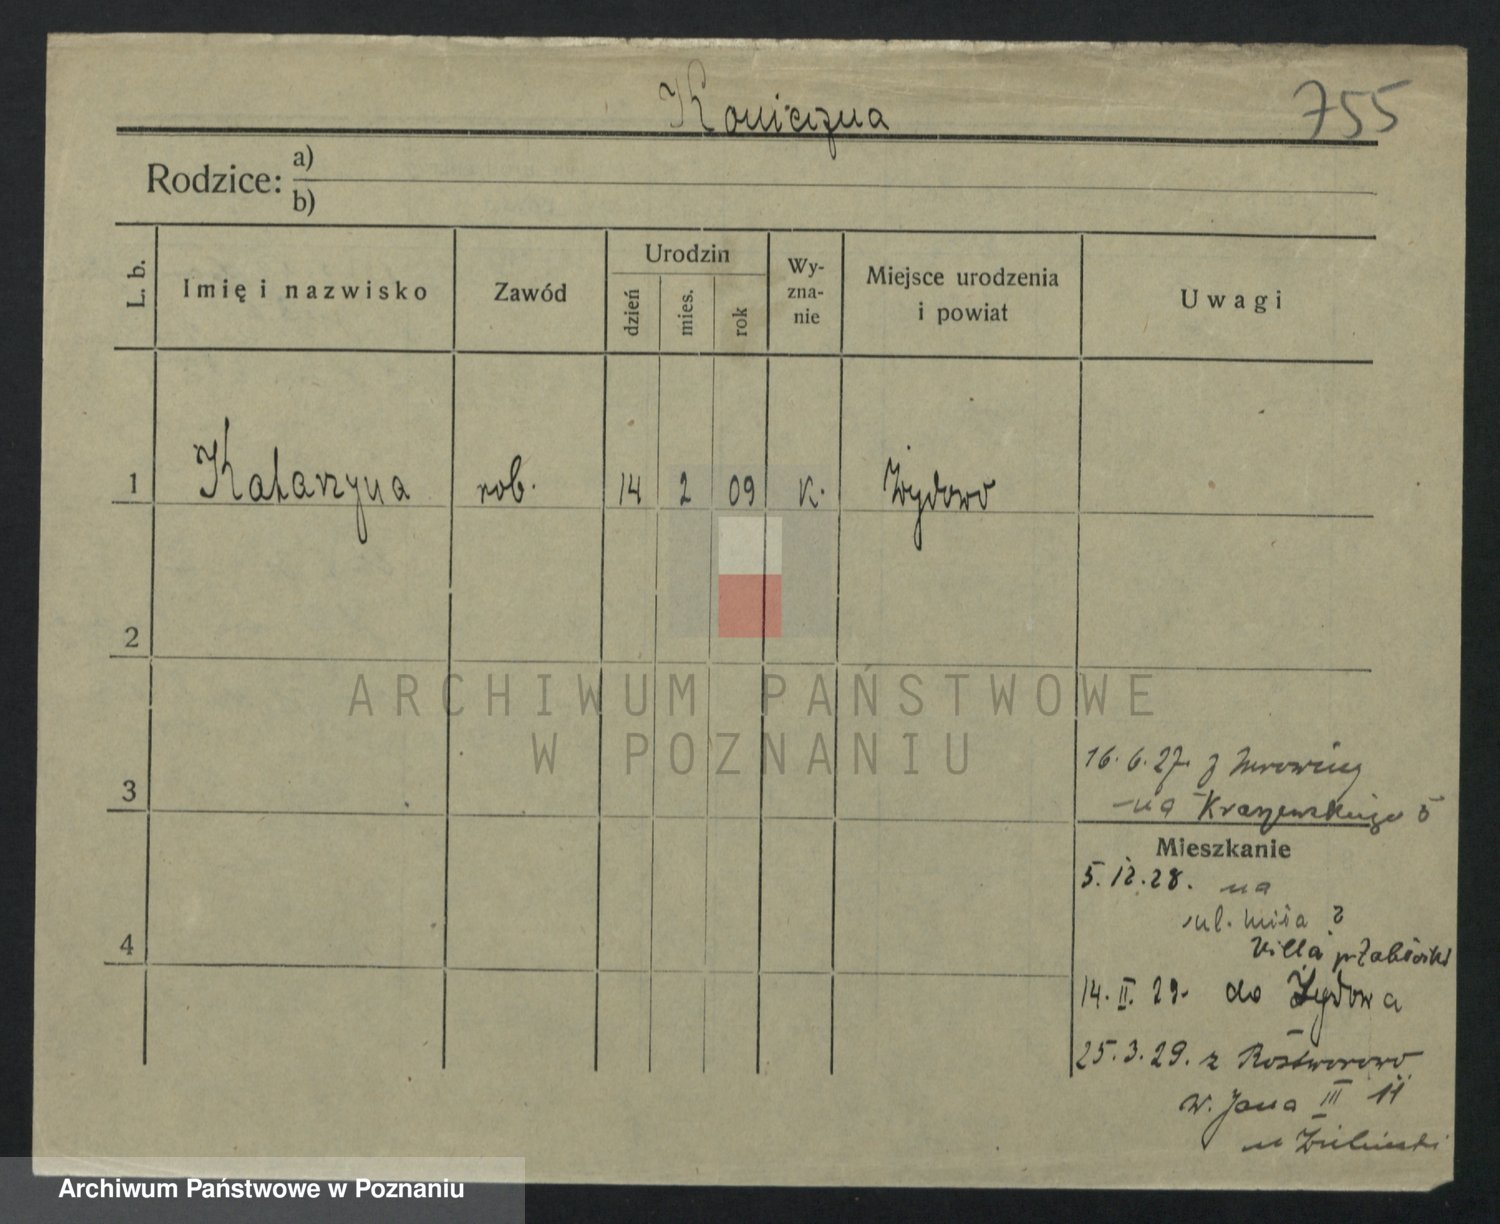 Konieczna
755
Rodzice: a)
b)
L. b.
Imię i nazwisko
Zawód
Urodzin
dzień
mies.
rok
Wy-
zna-
nie
Miejsce urodzenia
i powiat
Uwagi
1 Katarzyna rob. 14 2 09 K. Żydowo
2
ARCHIWUM PAŃSTWOWE
W POZNANIU
3
16.6.27. z
na Kraszewskiego 5
Mieszkanie
5.12.28. na
ul. 
Villa
4
14.II.29. do Żydowa
25.3.29. z Rostworowo
w. Jana III 11
u Zieliński
Archiwum Państwowe w Poznaniu